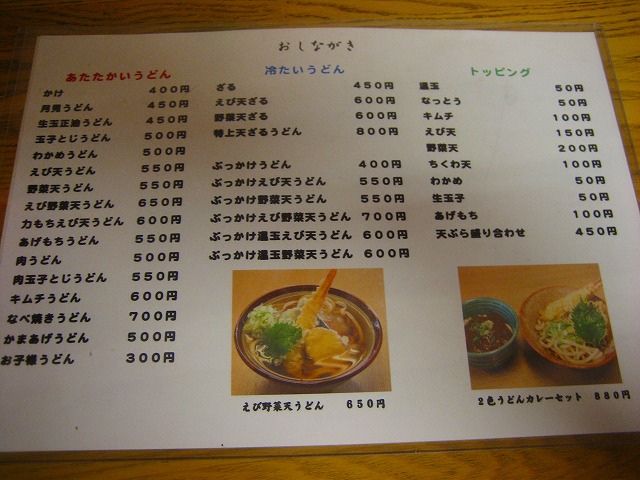 おしながき
あたたかいうどん
かけ 400円
月見うどん 450円
生玉正油うどん 450円
玉子とじうどん 500円
わかめうどん 500円
えび天うどん 550円
野菜天うどん 550円
えび野菜天うどん 650円
力もちえび天うどん 600円
あげもちうどん 550円
肉うどん 500円
肉玉子とじうどん 550円
キムチうどん 600円
なべ焼きうどん 700円
かまあげうどん 500円
お子様うどん 300円
冷たいうどん
ざる 450円
えび天ざる 600円
野菜天ざる 600円
特上天ざるうどん 800円
ぶっかけうどん 400円
ぶっかけえび天うどん 550円
ぶっかけ野菜うどん 550円
ぶっかけえび野菜天うどん 700円
ぶっかけ温玉えび天うどん 600円
ぶっかけ温玉野菜天うどん 600円
えび野菜天うどん 650円
トッピング
温玉 50円
なっとう 50円
キムチ 100円
えび天 150円
野菜天 200円
ちくわ天 100円
わかめ 50円
生玉子 50円
あげもち 100円
天ぷら盛り合わせ 450円
2色うどんカレーセット 880円